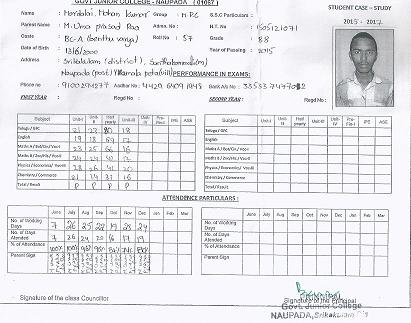 GOVT JUNIOR COLLEGE - NAUPADA (01067)
STUDENT CASE – STUDY
2015 - 2017
Name : Mandalai. Mohan kumar Group : H.P.C S.S.C Particulars :
Parent Name : M. Uma prasad Rao Adms. No : H.T. No : 1505121071
Caste : BC-A (benthu variya) Roll No : 57 Grade : 8.8
Date of Birth : 13/6/2000 Year of Passing : 2015
Address : Srikakulam (district), Santhabommali(m)
Naupada (post) PERFORMANCE IN EXAMS:
Phone no : Aadhar No : Bank A/c No :
FIRST YEAR : Regd No : SECOND YEAR : Regd No :
Subject Unit-I Unit-II Half yearly Unit-III Unit-IV Pre-Final IPE ASE
Telugu / GFC 21 23 80 18
English 19 18 69 17
Maths A / Bot/Civ / Voc-I 23 25 66 16
Maths B / Zoo/His / Voc-II 24 24 12
Physics / Economics / Voc-III 28 26 41 20
Chemistry / Commerce 21 14 37 16
Total / Result P P P P
Subject Unit-I Unit-II Half yearly Unit-III Unit-IV IPE ASE
Telugu / GFC
English
Maths A / Bot/Civ / Voc-I
Maths B / Zoo/His / Voc-II
Physics / Economics / Voc-III
Chemistry / Commerce
Total / Result
ATTENDENCE PARTICULARS :
June July Aug Sep Oct Nov Dec Jan Feb Mar
No. of Working Days 7 26 25 28 19 23 24
No. of Days Attended 7 26 24 20 16 17 19
% of Attendance 100% 100%
Parent Sign
June July Aug Sep Oct Nov Dec Jan Feb Mar
No. of Working Days
No. of Days Attended
% of Attendance
Parent Sign
Signature of the class Councillor
Signature of the Principal
Govt. Junior College
NAUPADA, Srikakulam